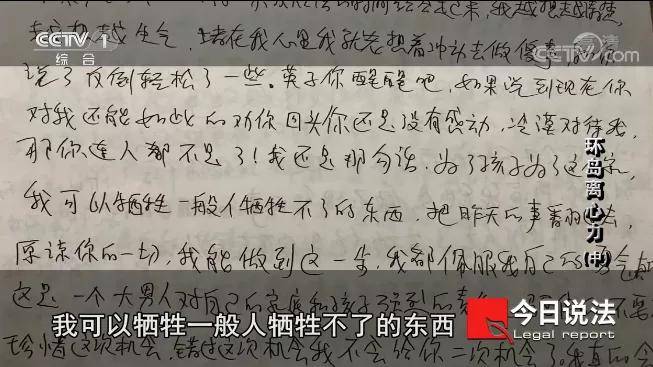 CCTV 1
综合
央视网
CCTV.com
越生气,堵在我心里我就老想着冲动去做傻事
说了反倒轻松了一些。英子你醒醒吧,如果说到现在你
对我还能如此的劝你回头你还是没有感动,冷漠对待我,
那你连人都不是了!我还是那句话,为了孩子为了这个家,
我可以牺牲一般人牺牲不了的东西,把昨天的事翻过去,
原谅你的一切,我能做到这一步,我都佩服我自己的勇气
这是一个大男人对自己的家庭和孩子
珍惜这次机会,错过这次机会我不会给你二次机会了。我真的会
环岛离心力(中)
我可以牺牲一般人牺牲不了的东西
今日说法
Legal report